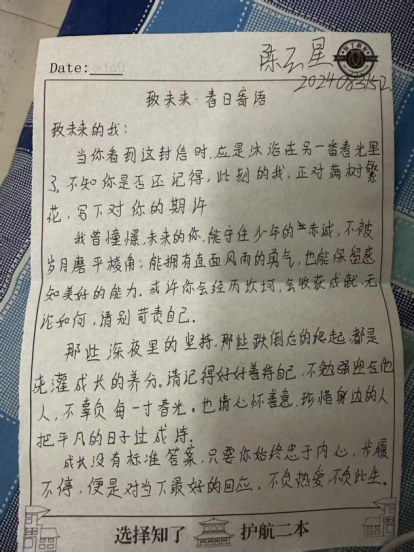 Date:
陈云星
2024083152
致未来·春日寄语
致未来的我：
当你看到这封信时，应是沐浴在另一番春光里
了，不知你是否还记得，此刻的我，正对满树繁
花，写下对你的期许
我曾憧憬，未来的你，能守住少年的赤诚，不被
岁月磨平棱角；能拥有直面风雨的勇气，也能保留感
知美好的能力。或许你会经历坎坷，会收获成就，无
论如何，请别苛责自己。
那些深夜里的坚持，那些跌倒后的爬起，都是
浇灌成长的养分。请记得好好善待自己，不勉强迎合他
人，不辜负每一寸春光。也请心怀善意，珍惜身边的人
把平凡的日子过成诗.
成长没有标准答案，只要你始终忠于内心，步履
不停，便是对当下最好的回应。不负热爱，不负此生。
选择知了 护航二本